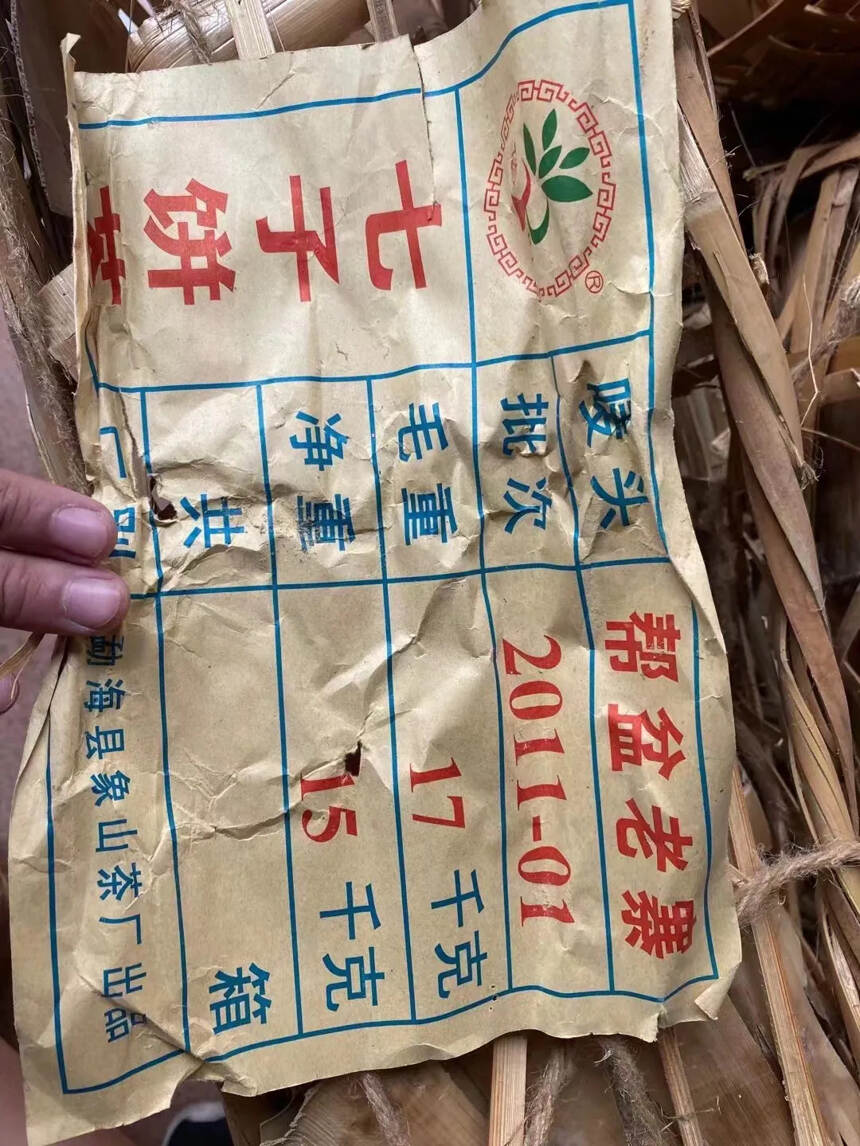 ®
七子饼茶
唛头 帮盆老寨
批次 2011-01
毛重 17 千克
净重 15 千克
共 箱
厂别 勐海县象山茶厂出品